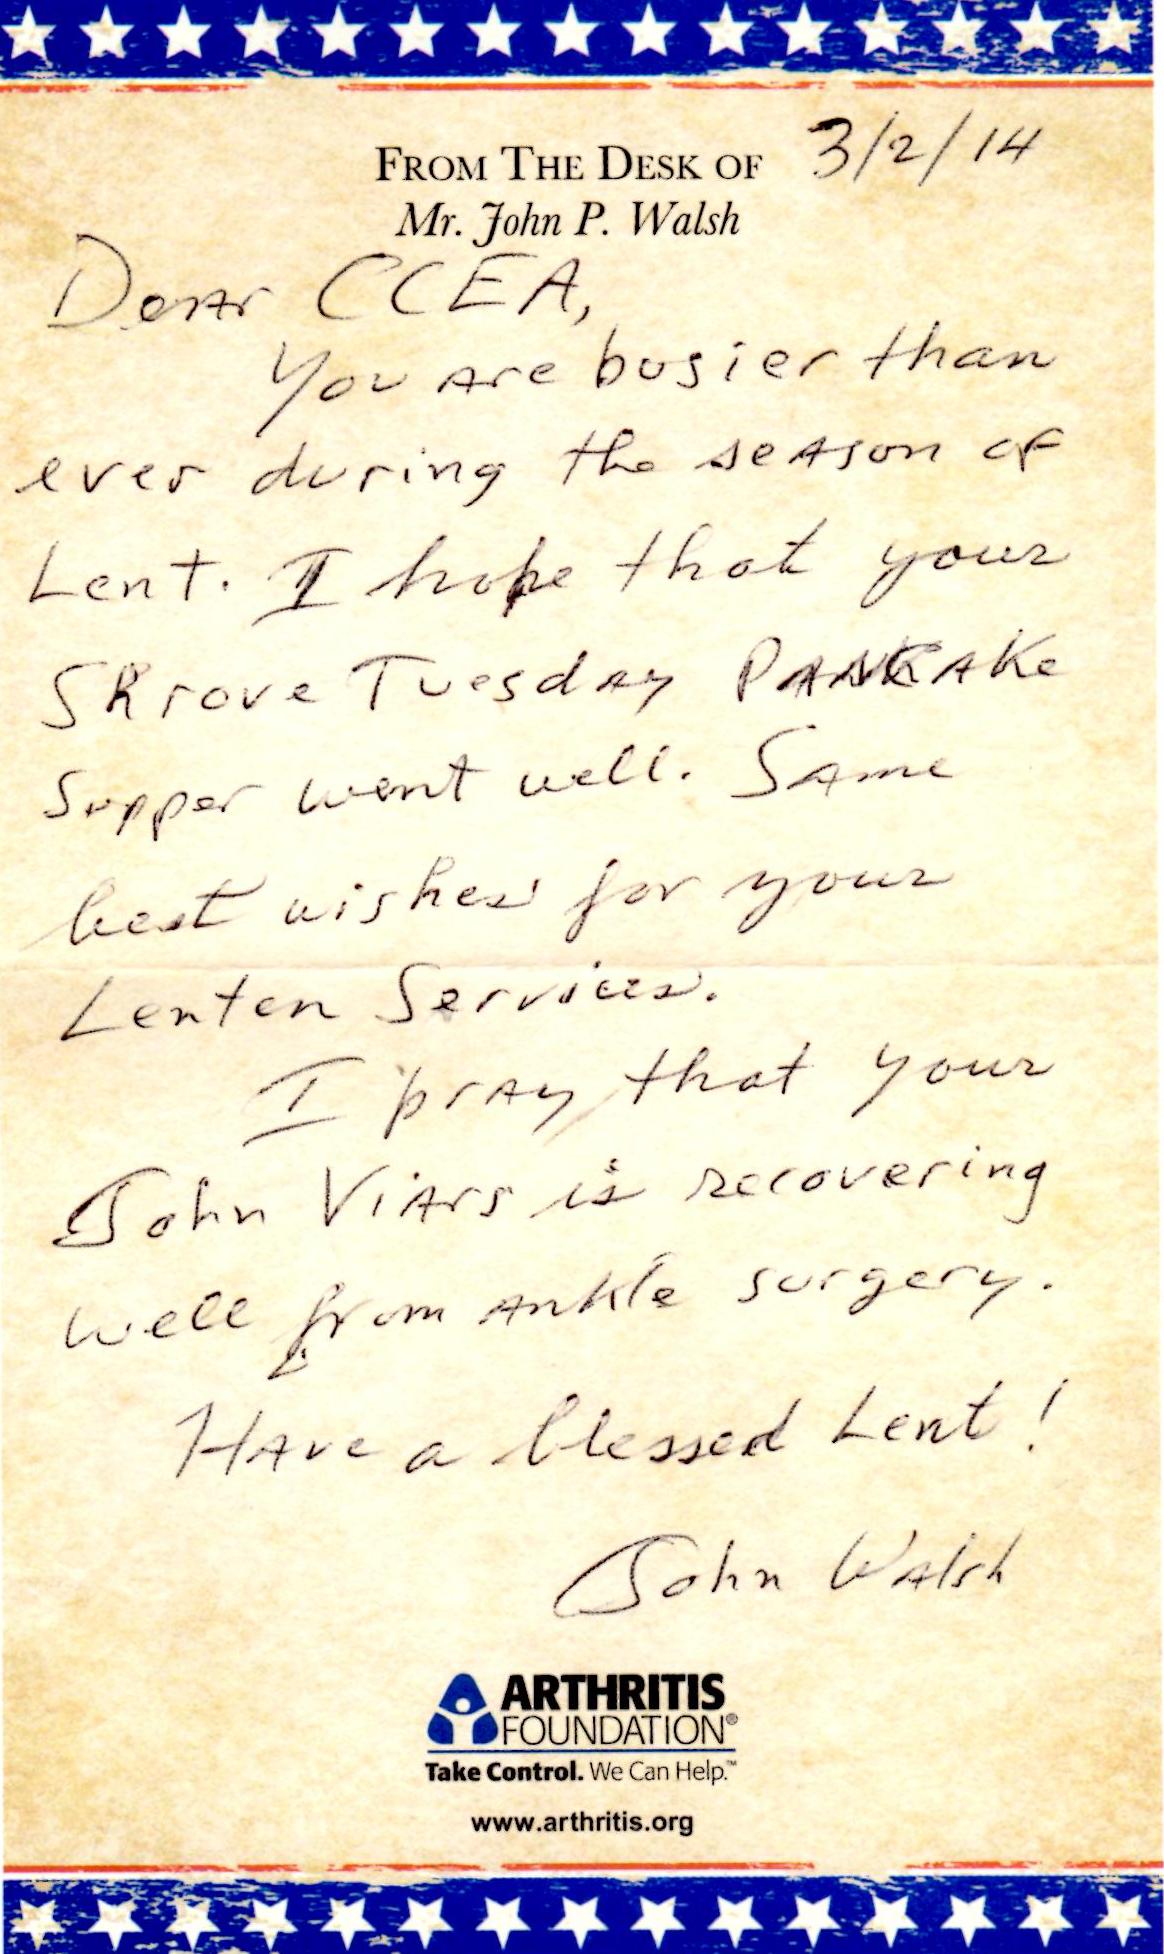 FROM THE DESK OF 3/2/14
Mr. John P. Walsh
Dear CCEA,
You are busier than
ever during the season of
Lent. I hope that your
Shrove Tuesday PANCAKe
Supper went well. Same
best wishes for your
Lenten Services.
I pray that your
John Viars is recovering
well from ankle surgery.
Have a blessed Lent!
John Walsh
ARTHRITIS
FOUNDATION®
Take Control. We Can Help.™
www.arthritis.org